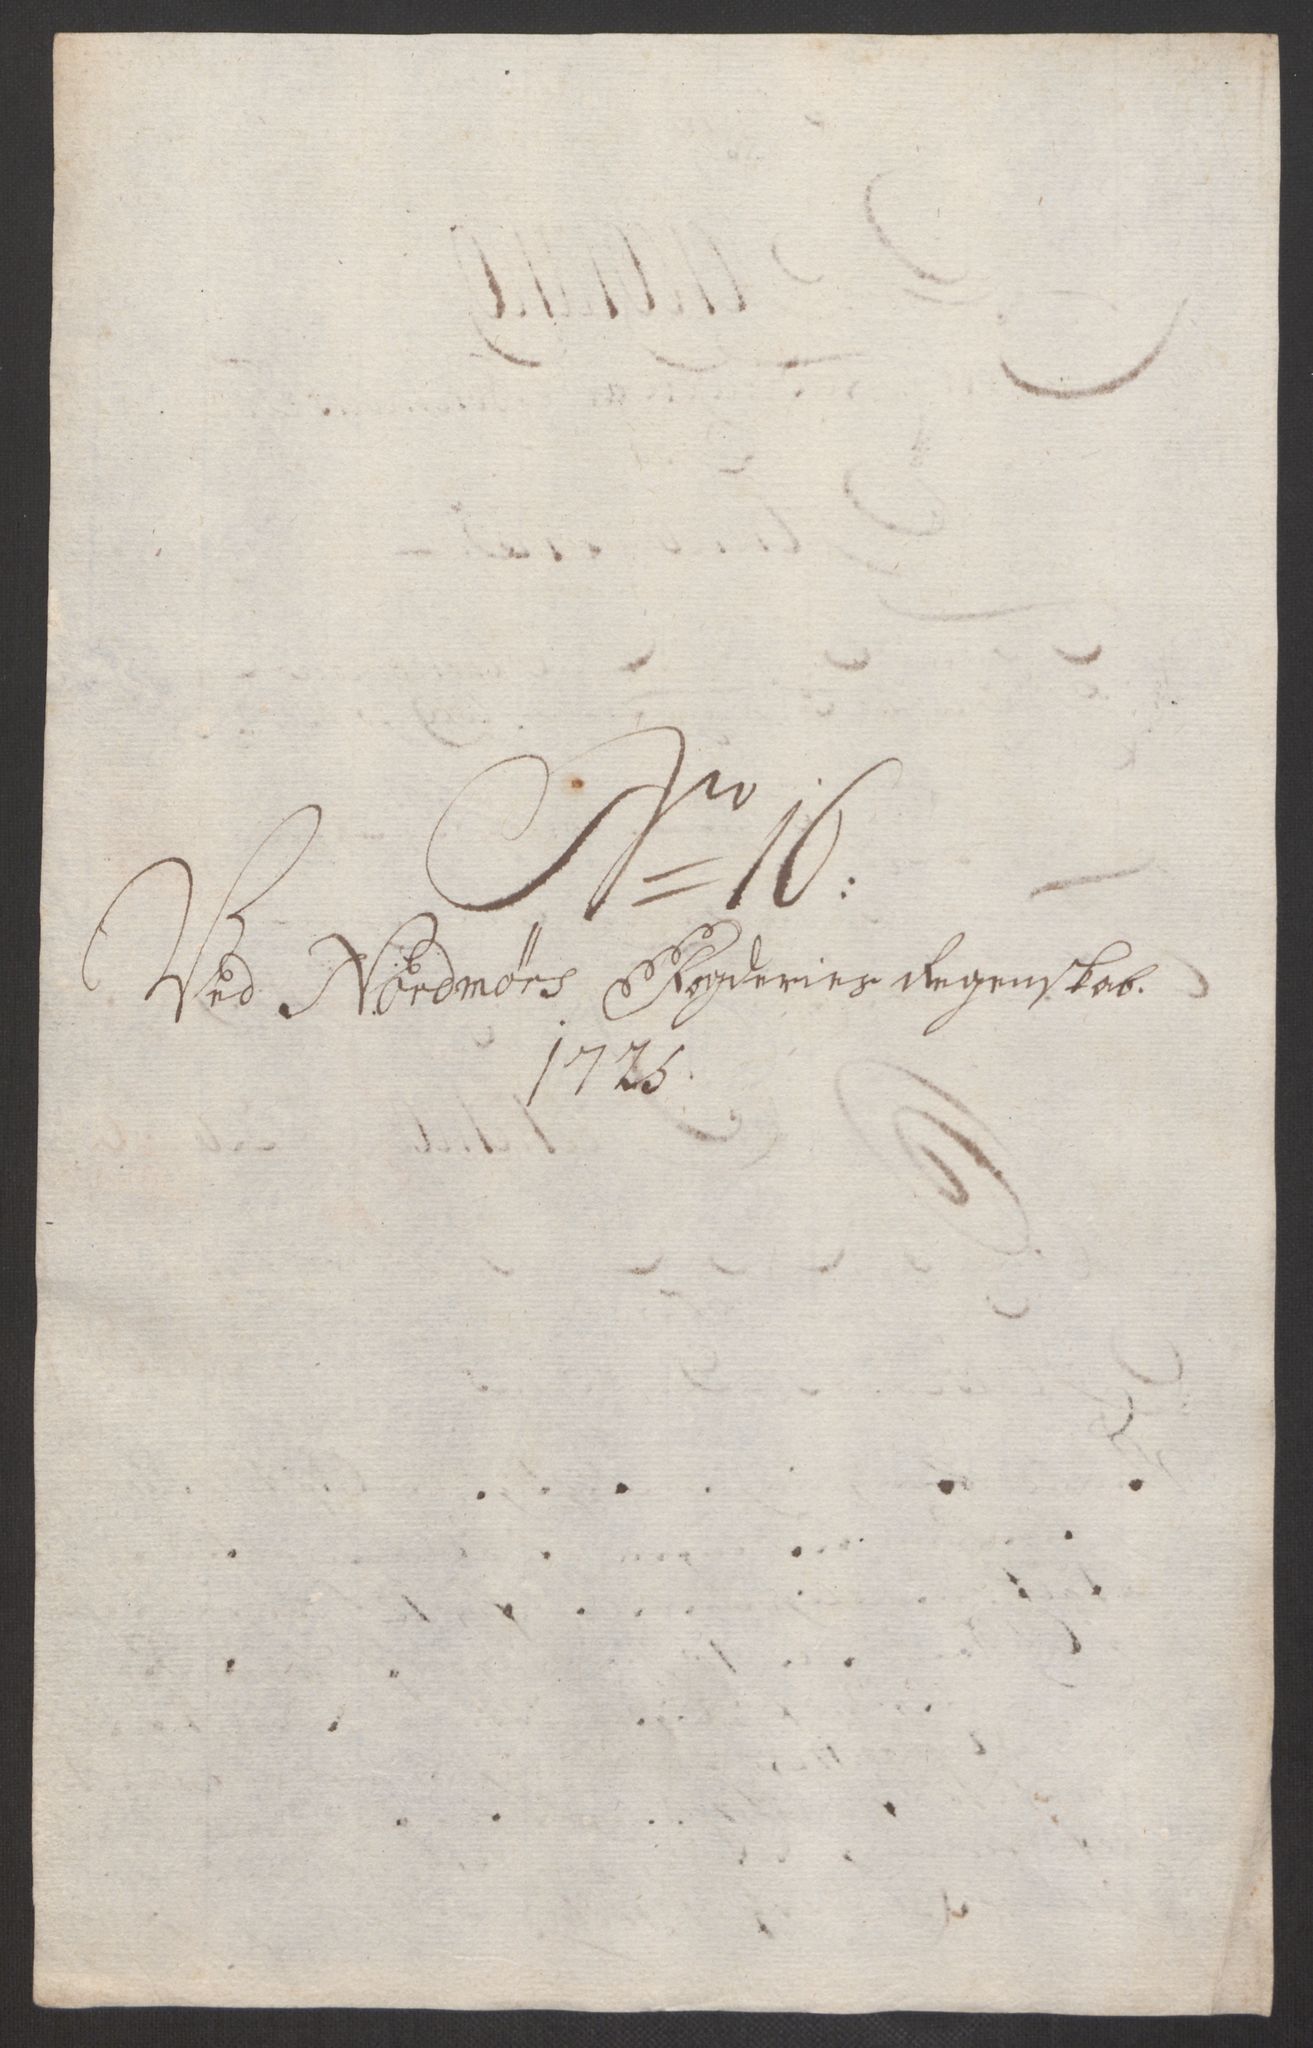 Nro 16:
Ved Nordmørs Fogderies Regenskab.
1725.